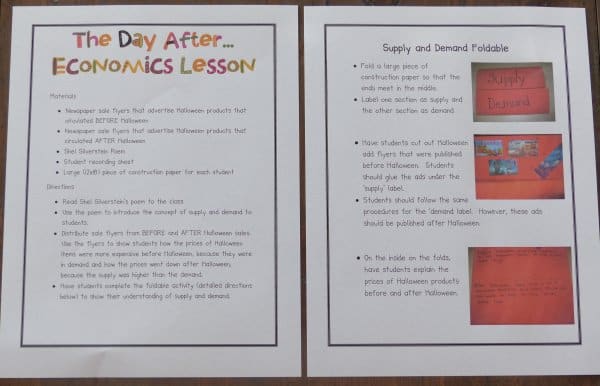 The Day After...
Economics Lesson
Materials
Newspaper sale flyers that advertise Halloween products that
circulated BEFORE Halloween
Newspaper sale flyers that advertise Halloween products that
circulated AFTER Halloween
Shel Silverstein Poem
Student recording sheet
Large (12x18) piece of construction paper for each student
Directions
Read Shel Silverstein's poem to the class
Use the poem to introduce the concept of supply and demand to
students.
Distribute sale flyers from BEFORE and AFTER Halloween sales.
Use the flyers to show students how the prices of Halloween
items were more expensive before Halloween, because they were
in demand and how the prices went down after Halloween,
because the supply was higher than the demand.
Have students complete the foldable activity (detailed directions
below) to show their understanding of supply and demand.
Supply and Demand Foldable
Fold a large piece of
construction paper so that the
ends meet in the middle.
Label one section as supply and
the other section as demand.
Supply
Demand
Have students cut out Halloween
ads flyers that were published
before Halloween. Students
should glue the ads under the
'supply' label.
Students should follow the same
procedures for the 'demand label. However, these ads
should be published after Halloween.
On the inside on the folds,
have students explain the
prices of Halloween products
before and after Halloween.